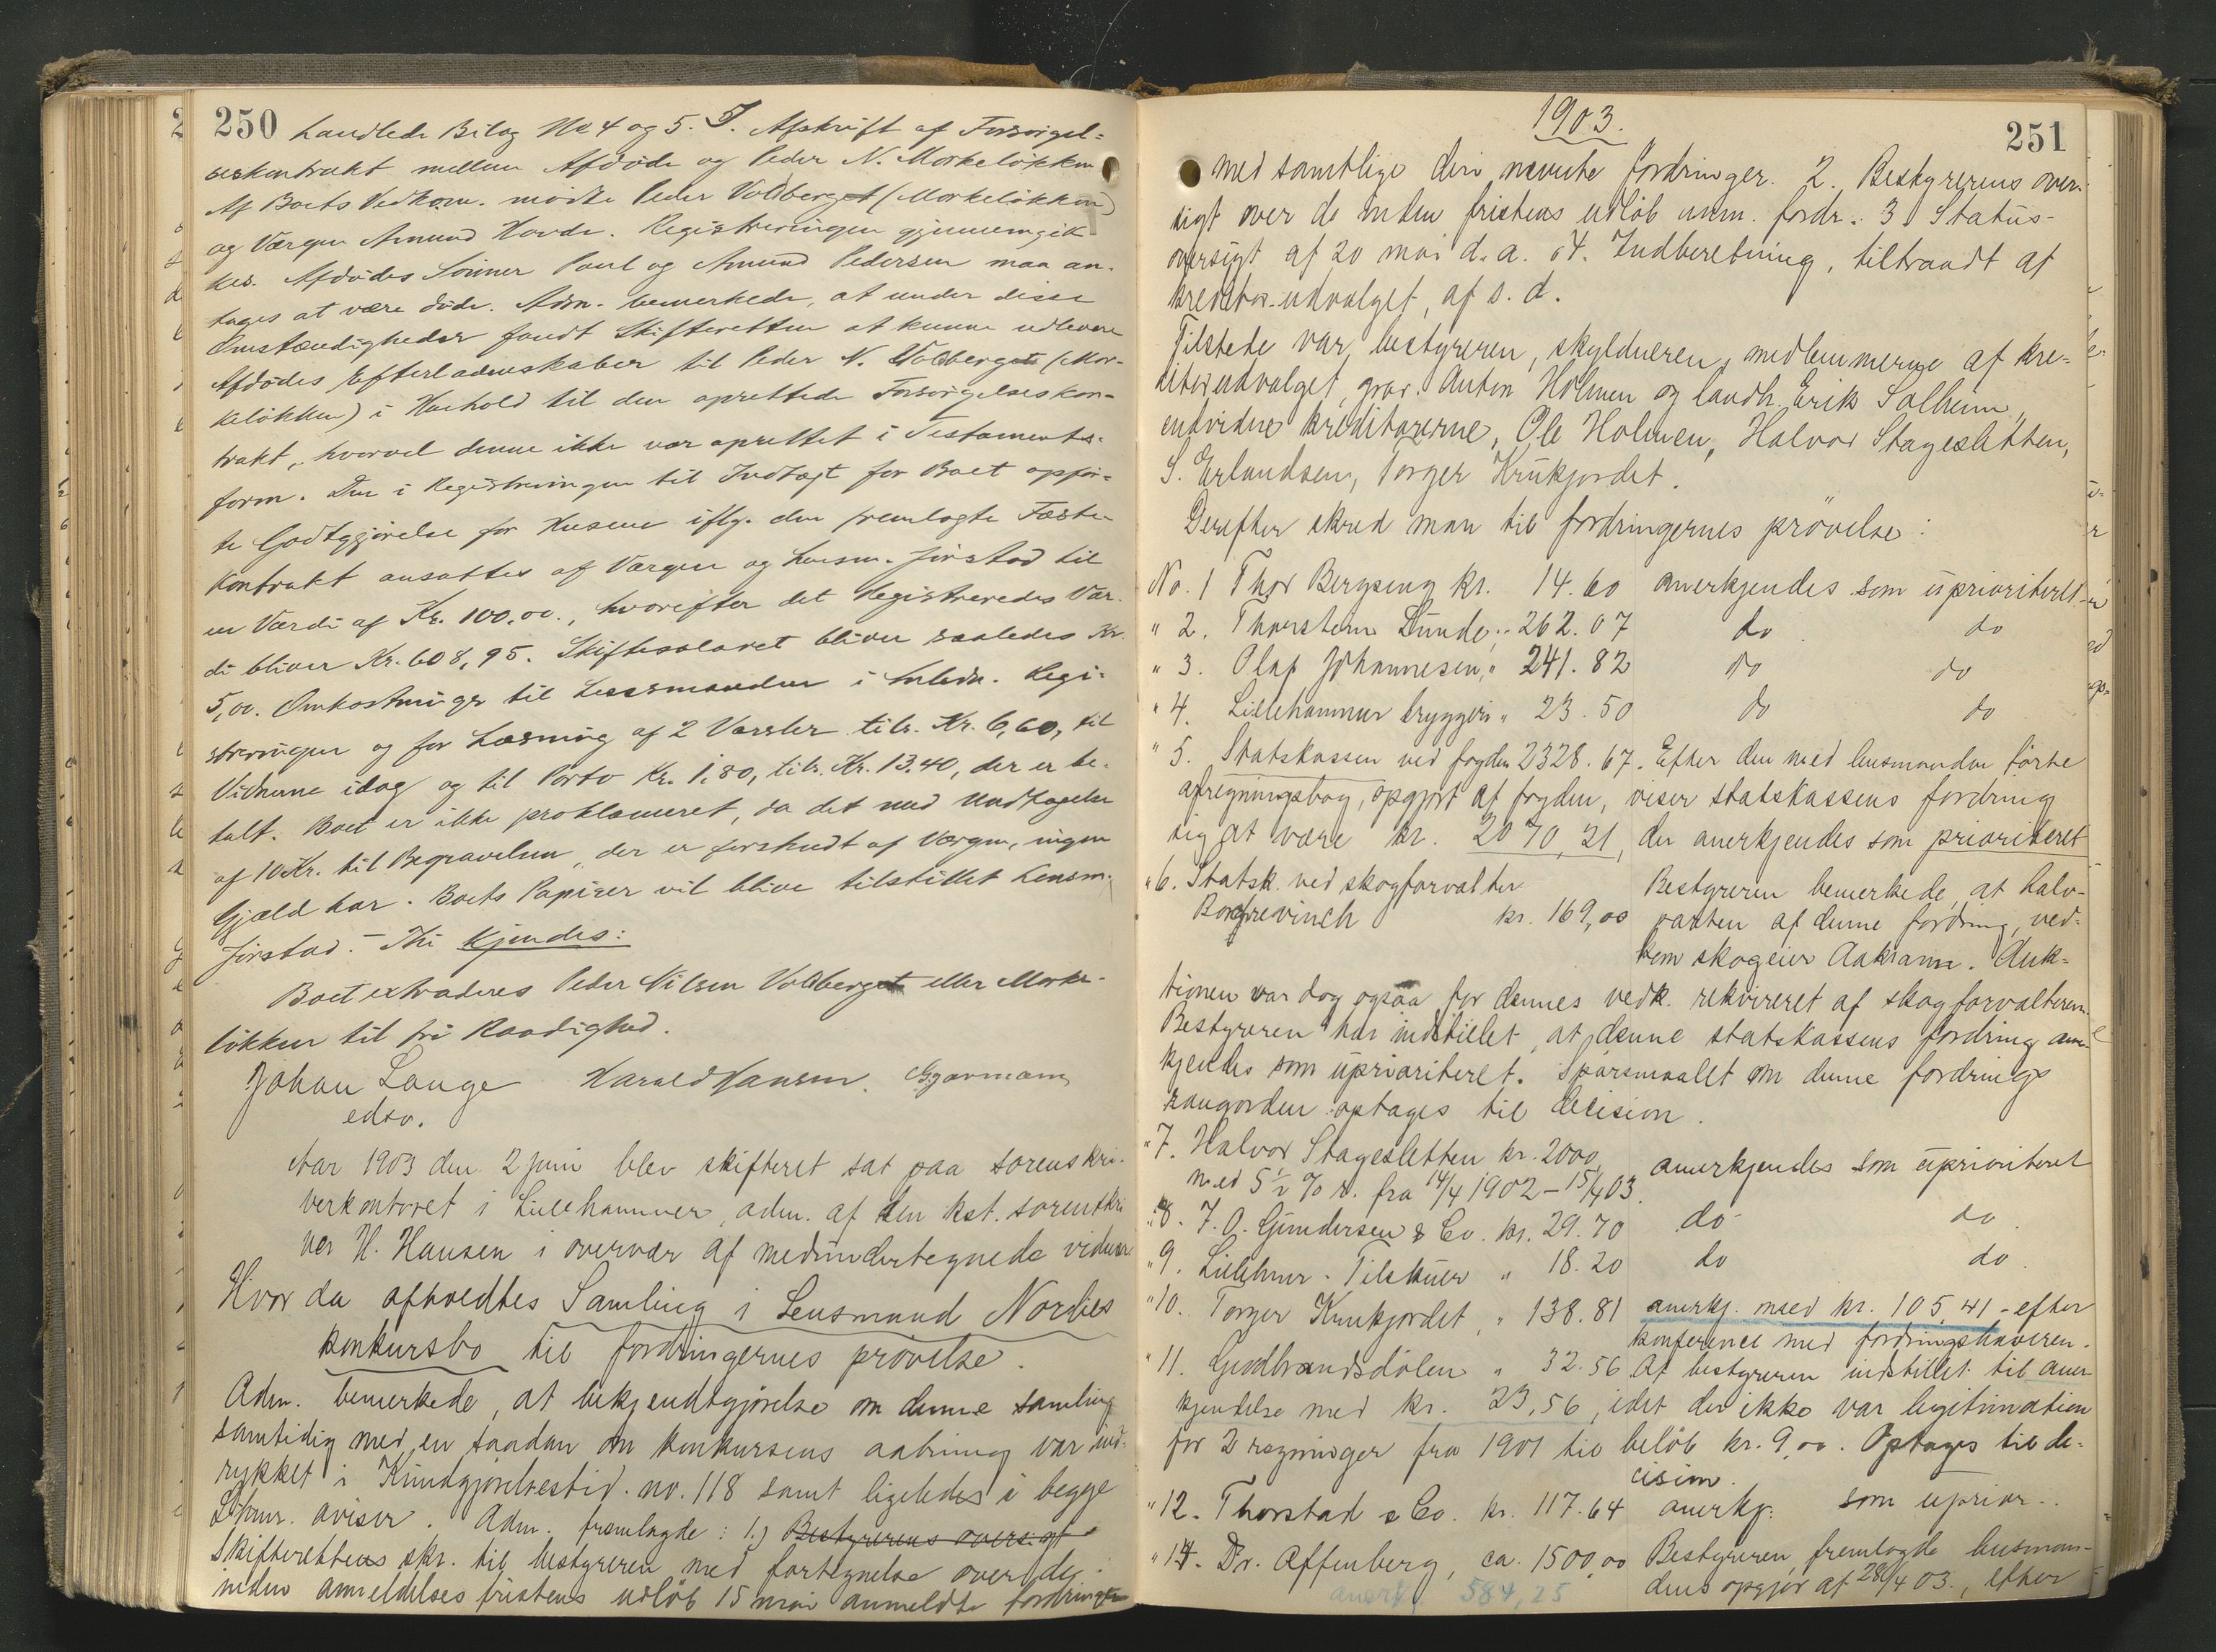 250
handlede Bilag No 4 og 5. J. Afskrift af Forsørgel-
seskontrakt mellem Afdøde og Peder N. Morkeløkken
Af Boets Vedkom. mødte Peder Voldberget (Morkeløkken)
og Værgen Amund Hovde. Registreringen gjennemgik
kes. Afdødes Sønner Poul og Amund Pedersen maa an-
tages at være døde. Adm. bemerkede, at under disse
Omstændigheder fandt Skifteretten at kunne udlevere
Afdødes Efterladenskaber til Peder N. Voldberget (Mor-
keløkken) i Henhold til den oprettede Forsørgelseskon-
trakt, hvorvel denne ikke var oprettet i Testaments-
form. Den i Registreringen til Indtægt for Boet opfør-
te Godtgjørelse for Husene iflg. den fremlagte Fæste-
kontrakt ansattes af Værgen og Lensm. Jirstad til
en Værdi af Kr. 100,00., hvorefter det Registreredes Vær-
di bliver Kr. 608,95. Skiftesalæret bliver saaledes Kr.
5,00. Omkostninger til Lensmanden i Anledn. Regi-
streringen og for Læsning af 2 Varsler tils. Kr. 6,60, til
Vidnerne idag og til Porto Kr. 1,80, tils. Kr. 13.40, der er be-
talt. Boet er ikke proklameret, da det med Undtagelse
af 10 Kr. til Begravelsen, der er forskudt af Værgen, ingen
Gjæld har. Boets Papirer vil blive tilstillet Lensm.
Jirstad. - Thi Kjendes:
Boet extraderes Peder Nilsen Voldberget eller Morke-
løkken til fri Raadighed.
Johan Lange Harald Hansen. Gjørmann
edsv.
Aar 1903 den 2 juni blev skifteret sat paa sorenskri-
verkontoret i Lillehammer, adm. af den kst. sorenskri
ver H. Hansen i overvær af medundertegnede vidner
Hvor da afholdtes Samling i Lensmand Nordlies
konkursbo til fordringernes prøvelse.
Adm. bemerkede, at bekjendtgjørelse om denne samling
samtidig med en saadan om konkursens aabning var ind-
rykket i Kundgjørelsestid. no. 118 samt ligeledes i begge
Lhmr. aviser. Adm. fremlagde: 1.) Bestyrerens oversigt
Skifterettens skr. til bestyreren med fortegnelse over de
inden anmeldelsesfristens udløb 15 mai anmeldte fordringer
1903.
251
med samtlige deri nævnte fordringer. 2. Bestyrerens over-
sigt over de inden fristens udløb anm. fordr. 3 Status-
oversigt af 20 mai d. a. 4. Indberetning, tiltraadt af
kreditor-udvalget, af s. d.
Tilstede var bestyreren, skyldneren, medlemmerne af kre-
ditorudvalget, grar. Anton Holmen og landh. Erik Solheim,
endvidere kreditorerne, Ole Holmen, Halvor Stagesletten,
S. Erlandsen, Torger Krukjordet.
Derefter skred man til fordringernes prøvelse:
No. 1 Thor Bergseng kr. 14.60 anerkjendes som uprioriteret
" 2. Thorstein Lunde " 262.07 do do
" 3. Olaf Johannesen " 241.82 do do
" 4. Lillehammer bryggeri " 23.50 do do
" 5. Statskassen ved fogden 2328.67. Efter den med lensmanden førte
afregningsbog, opgjort af fogden, viser statskassens fordring
sig at være kr. 2070,21, der anerkjendes som prioriteret
" 6. Statsk. ved skogforvalter Bestyreren bemerkede, at halv-
Borgrevinck kr. 169,00 parten af denne fordring ved-
kom skogeier Aakrann. Auk-
tionen var dog ogsaa for dennes vedk. rekvireret af skogforvalteren.
Bestyreren har indstillet, at denne statskassens fordring aner-
kjendes som uprioriteret. Spørsmaalet om denne fordrings
rangorden optages til decision.
" 7. Halvor Stagesletten kr. 2000,
med 5 1/2 % r. fra 14/4 1902 - 15/4 03. anerkjendes som uprioriteret
" 8. J. O. Gundersen & Co. kr. 29.70 do do.
" 9. Lillehmr. Tilskuer " 18.20 do do.
" 10. Torger Krukjordet, " 138.81 anerkj. med kr. 105,41 - efter
konference med fordringshaveren.
" 11. Gudbrandsdølen " 32.56 Af bestyreren indstillet til aner
kjendelse med kr. 23,56, idet der ikke var legitimation
for 2 regninger fra 1901 til beløb kr. 9,00. Optages til de-
cision.
" 12. Thorstad & Co. kr. 117.64 anerkj. som uprior.
" 14. Dr. Offenberg, ca. 1500,00 Bestyreren fremlagde lensman-
dens opgjør af 28/4 03., efter
anerk. 584,25